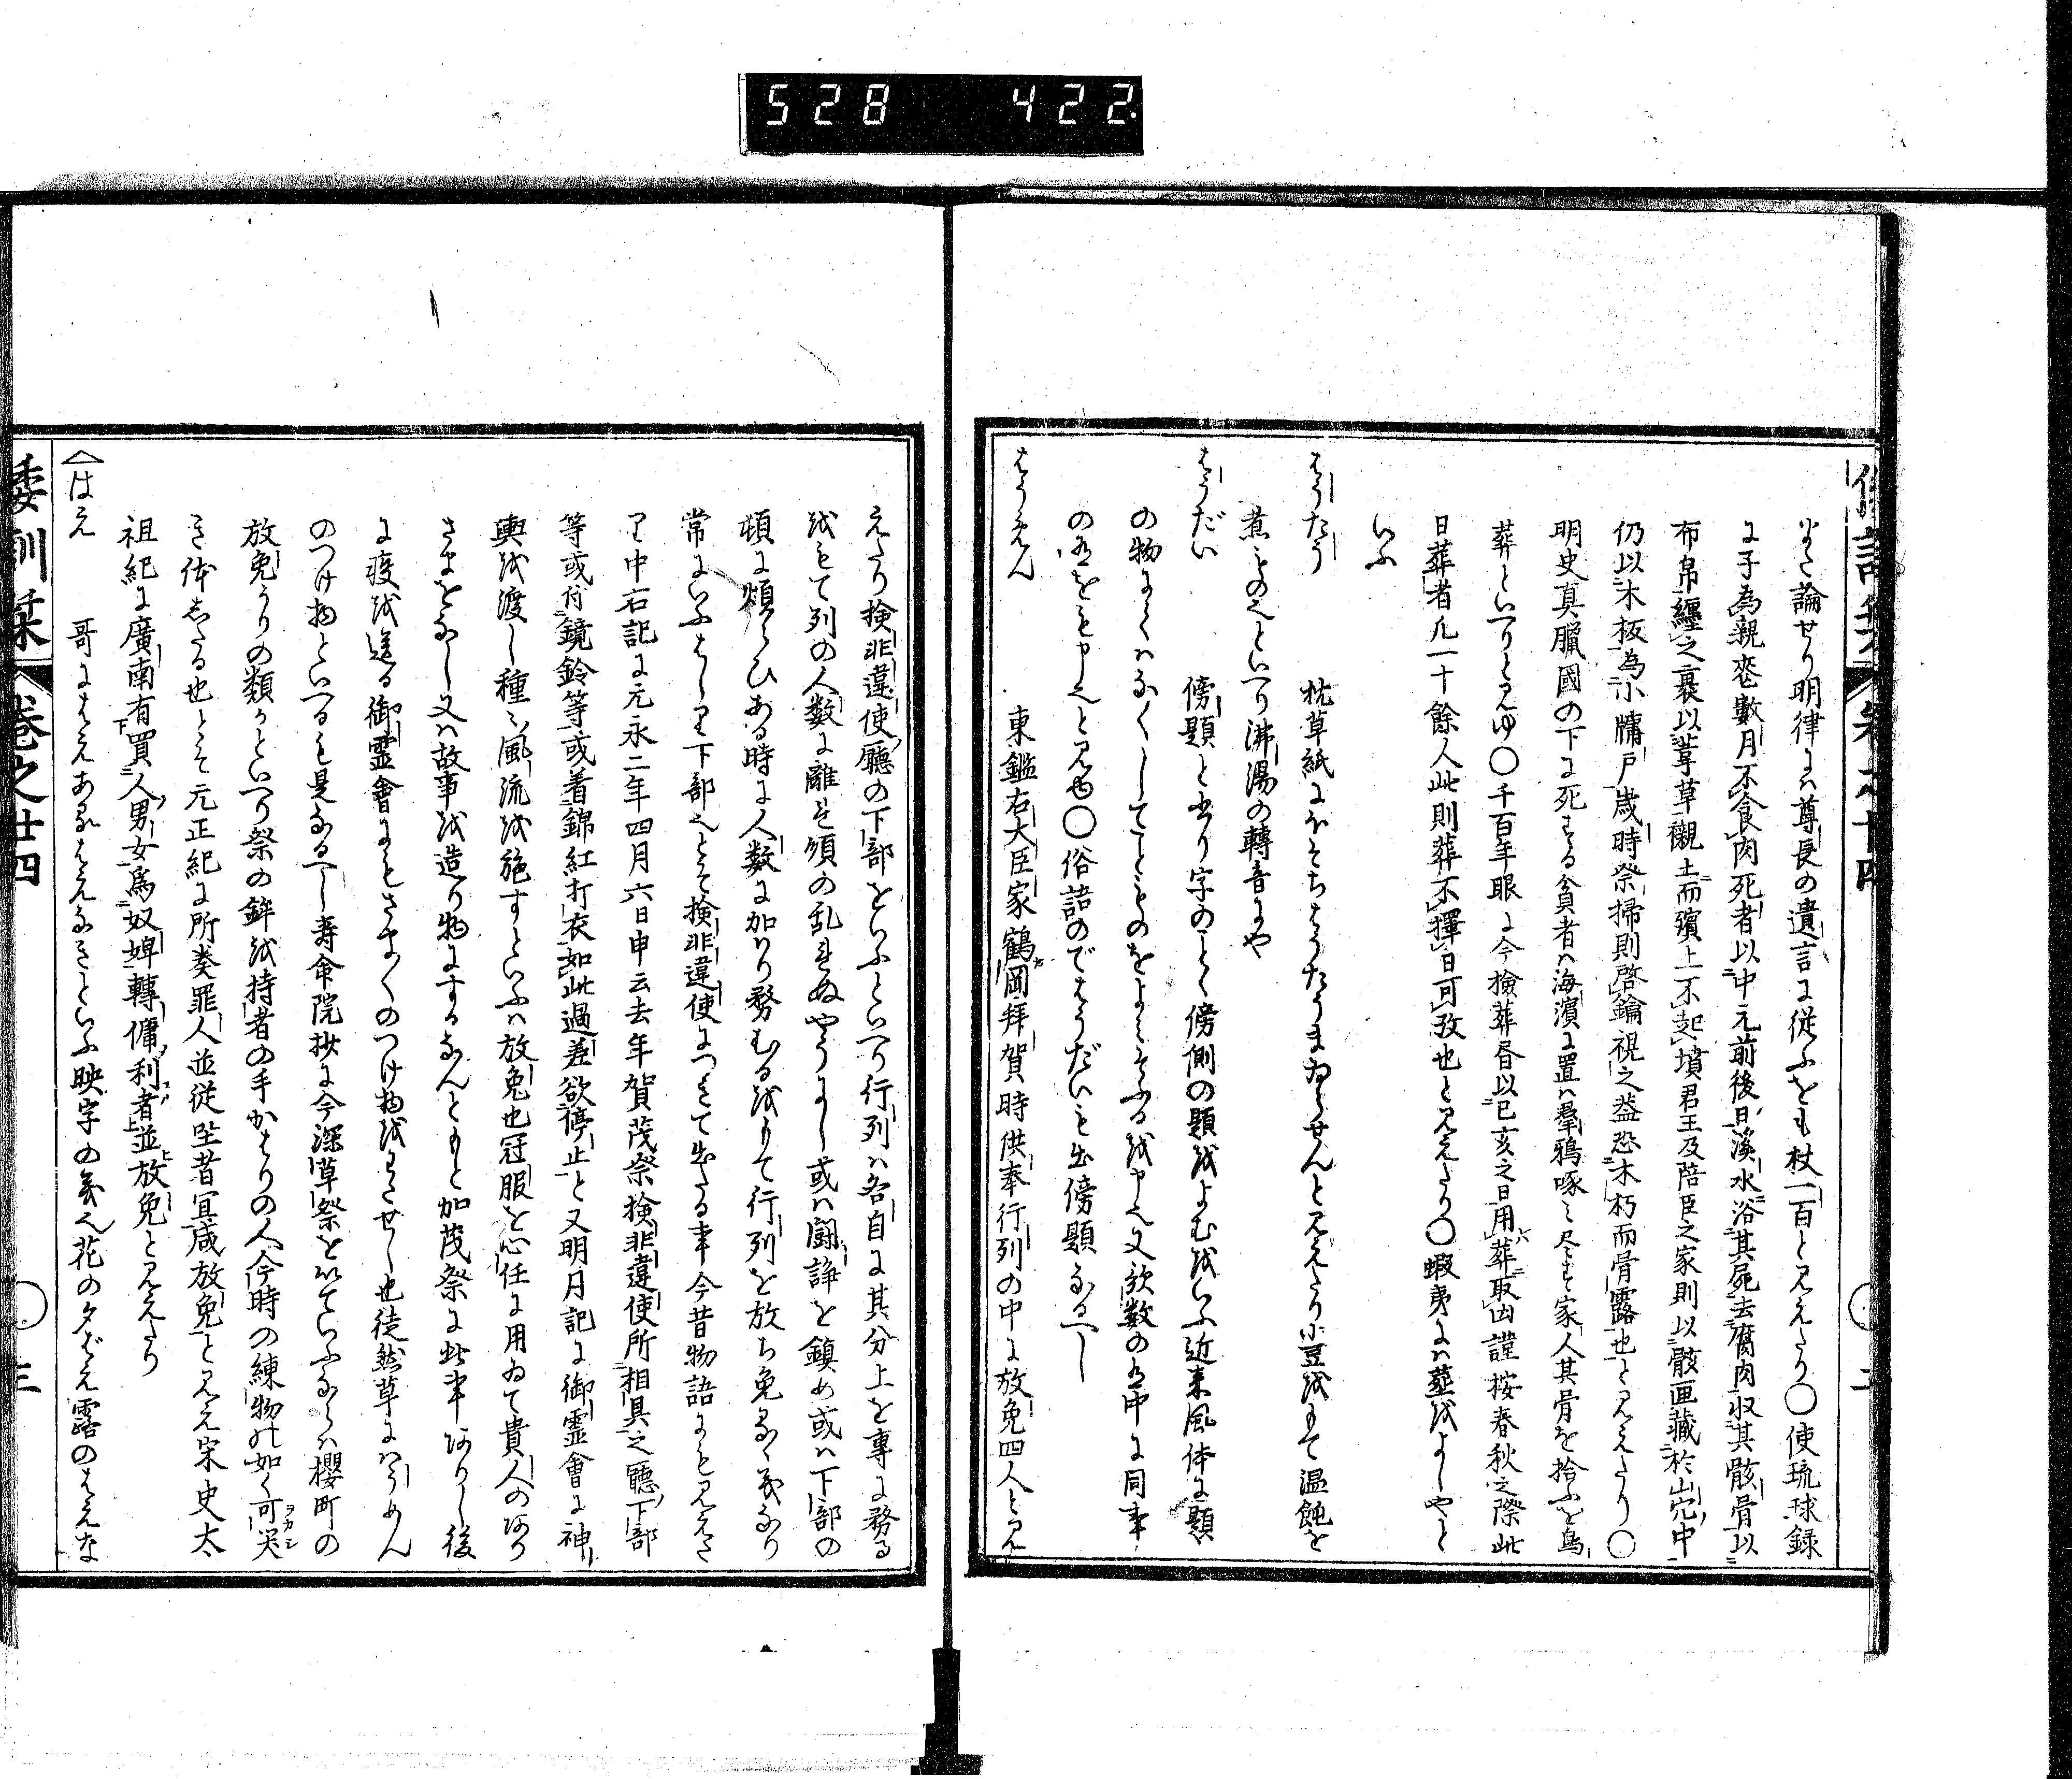 528 422
巻之廿四
さま論せり明律にハ尊長の遺言に従ふをも杖一百と見えたり○使琉球録
に子為親喪數月不食肉死者以中元前後日溪水浴其屍去腐肉収其骸骨以
布帛纏之裹以葦草襯土而殯上不起墳君王及陪臣之家則以骸匣藏於山穴中
仍以木板為小牖戸歳時祭掃則啓鑰視之葢恐木朽而骨露也と見えたり○
明史真臘國の下に死する貧者ハ海濱に置ハ羣鴉啄み尽す家人其骨を拾ふを鳥
葬といへりと見ゆ○千百年眼に今撿葬昏以巳亥之日用葬取凶謹桉春秋之際此
日葬者凡一十餘人此則葬不擇日可攷也と見えたり○蝦夷にハ葬をよしやと
いふ
はうたう 枕草紙にほそちはうたうまゐらせんと見えたり小豆をもて温飩を
煮ものといへり沸湯の轉音にや
はうだい 傍題と書り字のことく傍側の題をよむをいふ近来風体に題
の物にてハなくしてことものをよみそふるを申也又歌数の中に同事
の有をも申也と見ゆ○俗語のではうだいも出傍題なるへし
はうめん 東鑑右大臣家鶴岡拜賀時供奉行列の中に放免四人と見
えたり検非違使廳の下部をいふといへり行列ハ各自に其分上を專に務る
をもて列の人数に離を煩の乱れぬやうにし或ハ闘諍を鎮め或ハ下部の
頓に煩らひある時に人数に加ハり務むるをもて行列を放ち免るゝ義なり
常にいふはしり下部也とそ検非違使につきて出たる事今昔物語にも見えた
り中右記に元永二年四月六日申云去年賀茂祭検非違使所相具之聽下部
等或付鏡鈴等或着錦紅打衣如此過差欲停止と又明月記に御霊會に神
輿を渡し種々風流を施すといふハ放免也冠服を心任に用ゐて貴人のあり
さまをなし又ハ故事を造り物にするなんともと加茂祭に此事ありし後
に疫を送る御霊會にもさまくのつけ物をきせし也徒然草にハうめん
のつけ物といへるも是なるへし壽命院抄に今深草祭を以ていふならハ櫻町の
放免うりの類かといへり祭の鉾を持者の手かはりの人今時の練物の如く可笑ヲカシ
き体したる也とそ元正紀に所奏罪人並従坐者宜咸放免と見え宋史太
祖紀に廣南有買人男女爲奴婢轉傭利者並放免と見えたり
はえ 哥にはえあるはえなきといふ映字の義也花の夕ばえ露のはえな
倭訓栞 巻之廿四 三